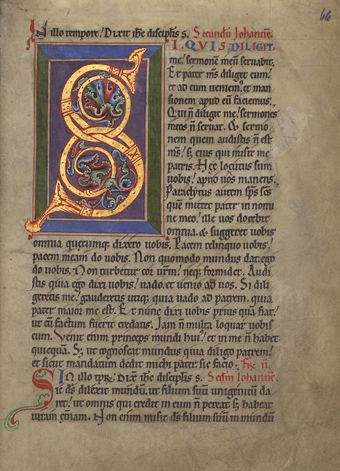 66
In illo tempore; Dixit ihc discipłis s. Secundū Iohannē.
SI QVIS DILIGIT
me, sermonē meū seruabit.
Et pater ms̄ diliget eum;
et ad eum ueniem; et man
sionem apud eū faciemus.
Qui n̄ diligit me, sermones
meos n̄ seruat. & sermo
nem quem audistis n̄ est
ms̄; s; eius qui misit me
patris. Hęc locutus sum
uobis; apud uos manens.
Paraclytus autem sp̄s scs̄
quē mittet pater in nomi
ne meo; ille uos docebit
omnia. & suggeret uobis
omnia quęcumq; dixero uobis. Pacem relinquo uobis;
pacem meam do uobis. Non quomodo mundus dat; ego
do uobis. Non turbetur cor ur̄m; neq; formidet. Audi
stis quia ego dixi uobis; uado, et uenio ad uos. Si dili
geretis me; gauderetis utiq; quia uado ad patrem, quia
pater maior me est. Et nunc dixi uobis prius quā fiat;
ut cū factum fuerit credatis. Iam n̄ multa loquar uobis
cum. Venit enim princeps mundi hui'; et in me n̄ habet
quicquā. S; ut cognoscat mundus quia diligo patrem;
et sicut mandatum dedit michi pater sic facio.
In illo tp̄r; Dix̄ ihc discipłis s. Secdm̄ Iohannē.
Sic ds̄ dilexit mundū, ut filium suū unigenitū da
ret; ut omnis qui credit in eum n̄ pereat; s; habeat
uitam et̄nam. Non enim misit ds̄ filium suū in mundū